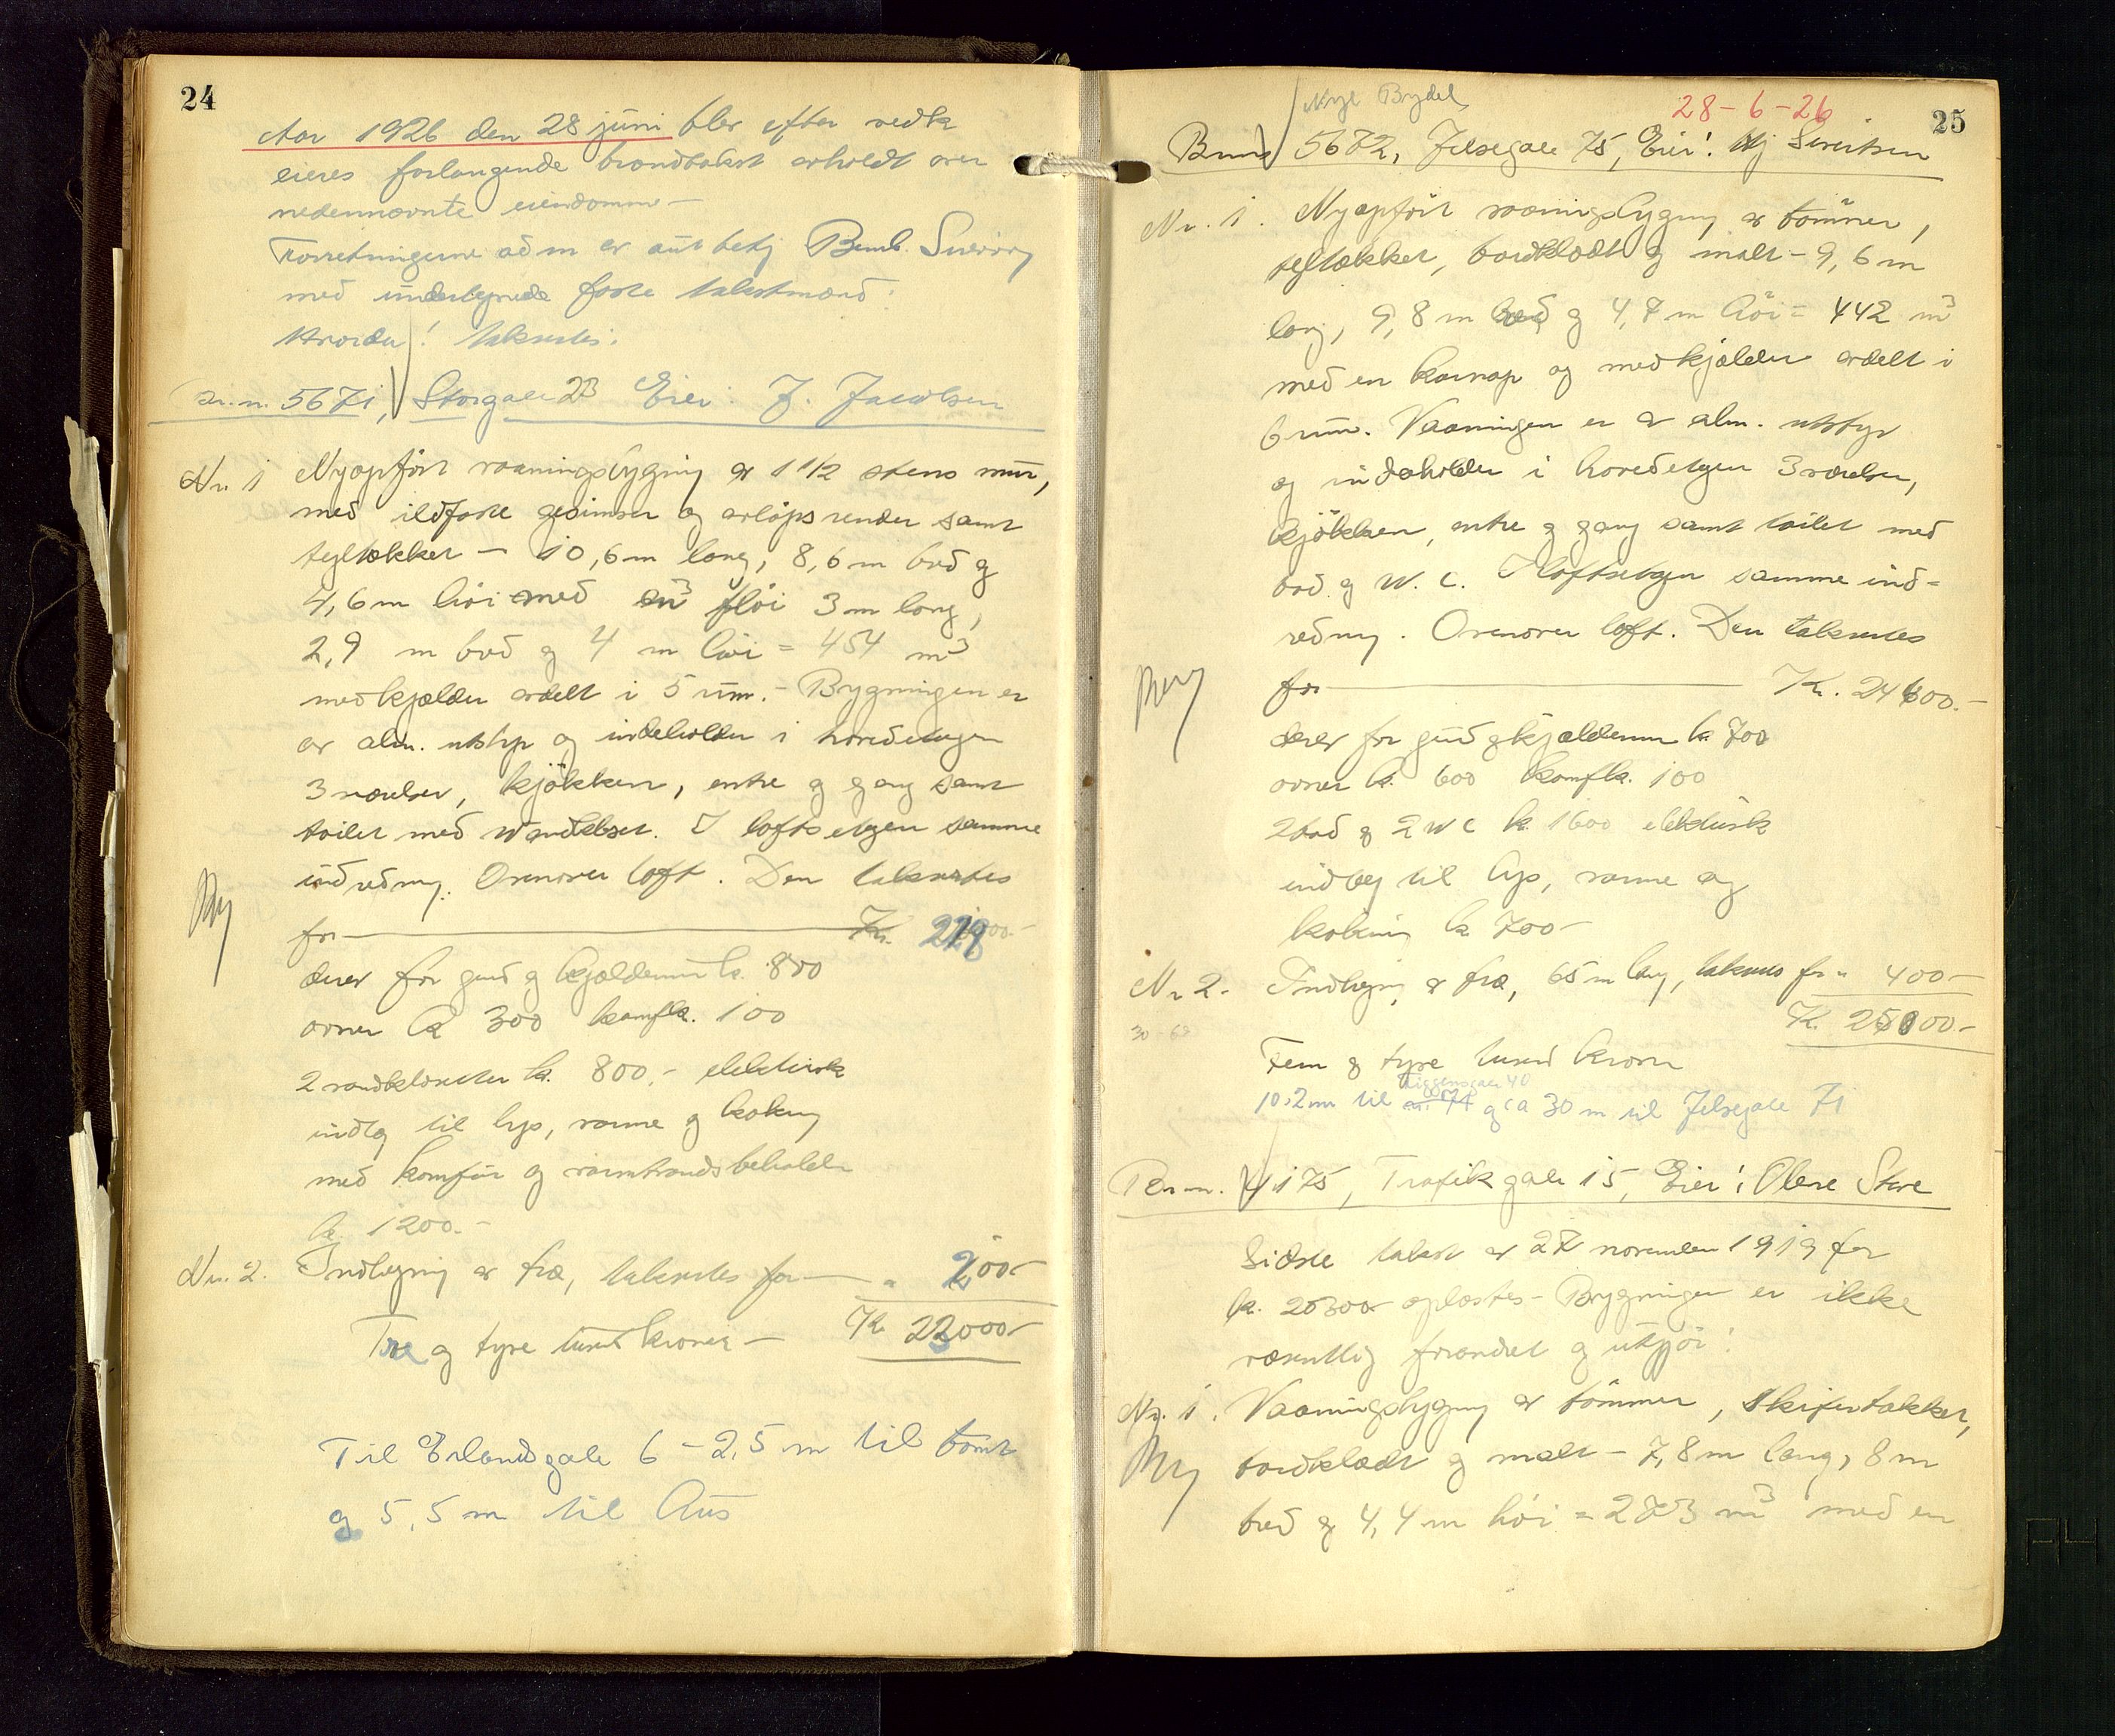 24
Aar 1926 den 28 juni blev efter vedk
eieres forlangende brandtakst avholdt over
nedennævnte eiendomme —
Forretningerne adm av aut befj Bernh.
med undertegnede faste takstmænd:
Hvorder! takseres:
Br.n. 5671, Storgate 23 Eier: J. Jacobsen
Nr. 1 Nyopført vaaningsbygning av 1 1/2 stens mur,
med ildfaste gesimser og avløpsrender samt
tegltækket — 10,6 m lang, 8,6 m bred og
4,6 m høi med en fløi 3 m lang,
2,9 m bred og 4 m høi = 454 m3
med kjælder avdelt i 5 rum. - Bygningen er
av alm. utstyr og indeholder i hovedetagen
3 værelser, kjøkken, entre og gang samt
toilet med vandkloset. I loftsetagen samme
indredning. Ovenover loft. Den takseres
for — Kr.
derav for grund og kjældermur kr. 800
ovner kr 300 komf kr. 100
2 vandklosetter kr. 800.- elektrisk
indlæg til lys, varme og kokning
med komfur og varmtvandsbeholder
kr. 1200.-
Nr. 2. Indhegning av træ, takseres for — " 200-
Tre og tyve tusen kroner — Kr 23000-
Til Erlandsgate 6 - 2,5 m til tomt
og 5,5 m til hus
Nyl Bydel
28-6-26
25
Br.n. 5672, Jelsegate 75, Eier: Hj Sivertsen
Nr. 1. Nyopført vaaningsbygning av tømmer,
tegltækket, bordklædt og malt - 9,6 m
lang, 9,8 m bred og 4,7 m høi = 442 m3
med en karnap og med kjælder avdelt i
6 rum. Vaaningen er av alm. utstyr
og indeholder i hovedetagen 3 værelser,
kjøkken, entre og gang samt toilet med
bad og W.C. I loftsetagen samme ind-
redning. Ovenover loft. Den takseres
for — Kr. 24600.-
derav for grund og kjældermur kr. 700
ovner kr. 600 komf kr. 100
2 bad og 2 WC kr. 1600 elektrisk
indlæg til lys, varme og
kokning kr 700-
Nr 2. Indhegning av træ, 65 m lang, takseres for " 400-
Kr. 25000-
30-63
Fem og tyve tusend kroner
Viggensgate 40
10,2 m til 74 og ca 30 m til Jelsegate 71
Br.n. 4175, Trafikgate 15, Eier: Olene Stere
Sidste takst av 27 november 1919 for
kr. 20300 oplæstes - Bygningen er ikke
væsentlig forandret og utgjør:
Nr. 1. Vaaningsbygning av tømmer, skifertækket,
bordklædt og malt - 7,8 m lang, 8 m
bred og 4,4 m høi = 273 m3 med en